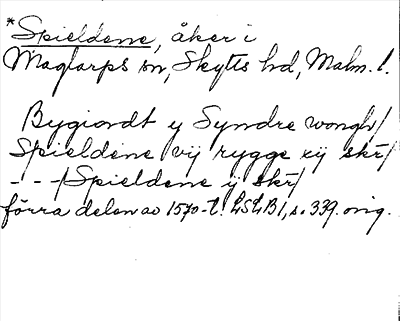 *Spieldene, åker i
Maglarps sn, Skytts hd, Malm. l.
Bygiordt y Syndre wongh/
Spieldene vij rygge xij skr/
- - -/Spieldene ij skr/
förra delen av 1570-t. LSLB1, s. 339. orig.